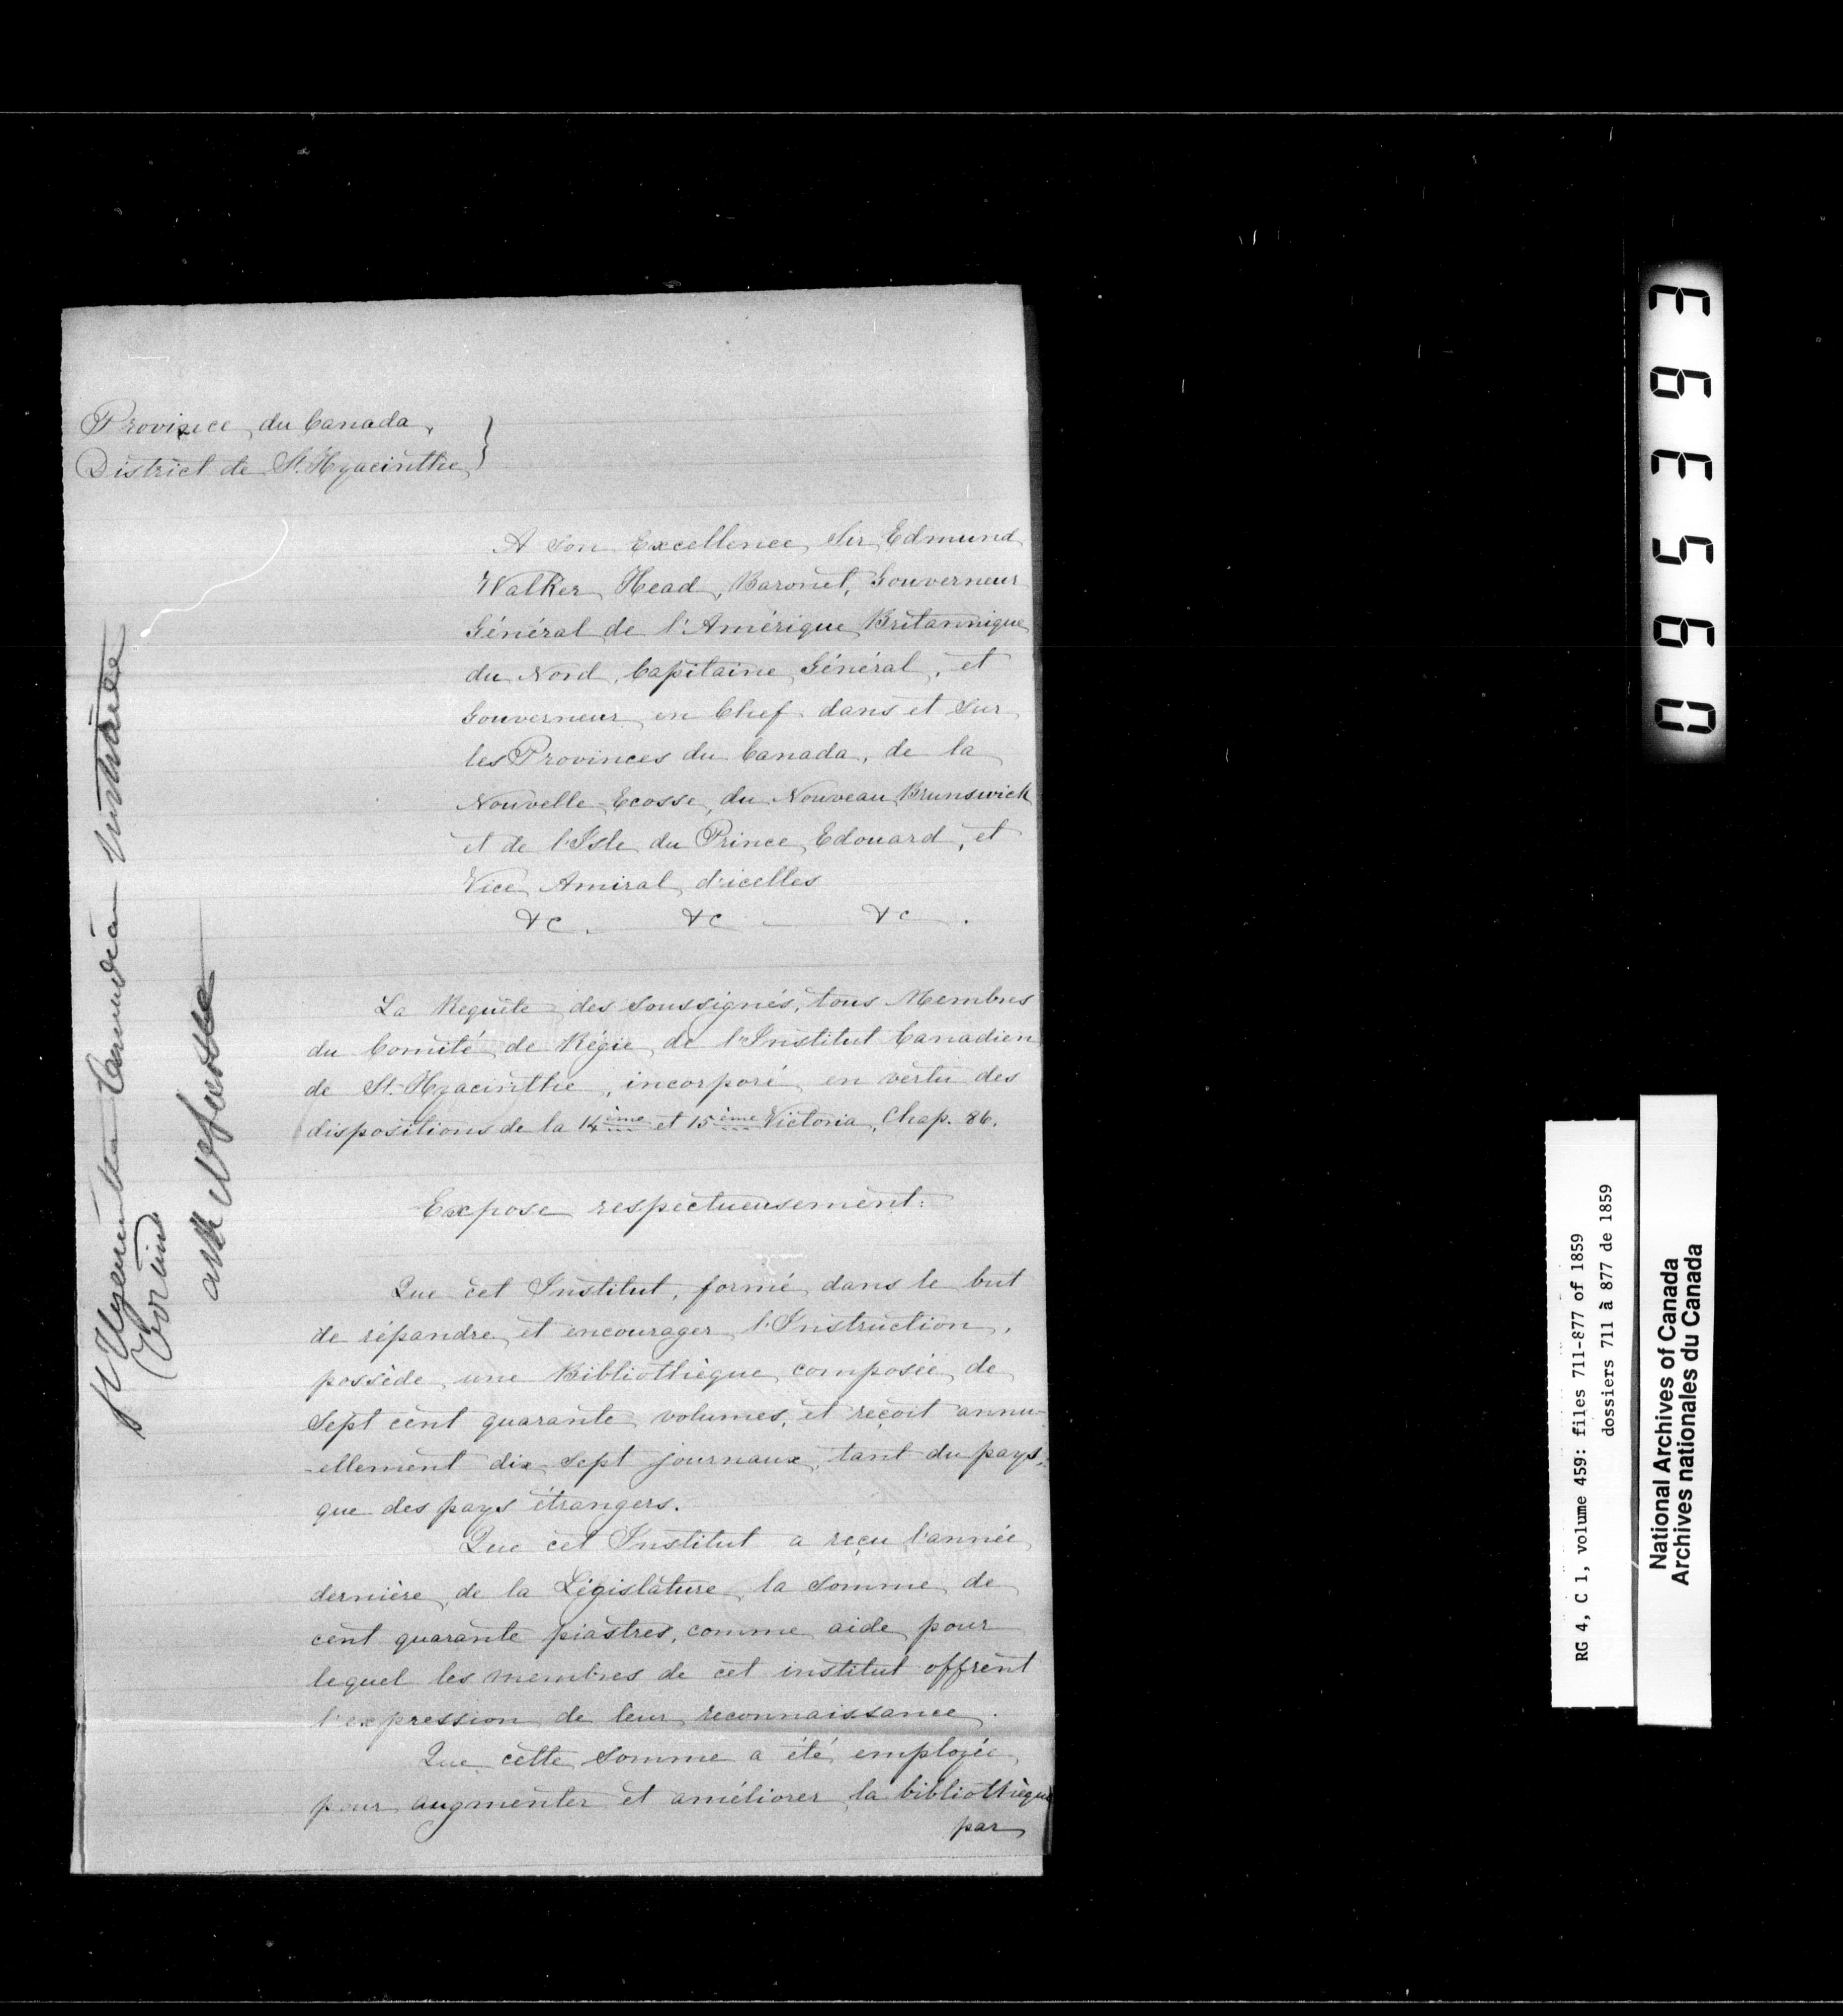 Province du Canada,
District de St. Hyacinthe }
A Son Excellence, Sir Edmund
Walker Head, Baronet, Gouverneur
Général de l'Amérique Britannique
du Nord, Capitaine Général, et
Gouverneur en Chef dans et Sur
les Provinces du Canada, de la
Nouvelle-Ecosse, du Nouveau Brunswick
et de l'Isle du Prince Edouard, et
Vice Amiral d'icelles
&c. &c — &c.
La Requête des Soussignés, tous Membres
du Comité de Régie de l'Institut Canadien
de St. Hyacinthe, incorporé en vertu des
dispositions de la 14ème et 15ème Victoria, Chap. 86.
Expose respectueusement:
Que cet Institut, formé dans le but
de répandre et encourager l'Instruction,
possède une Bibliothèque composée de
Sept cent quarante volumes, et reçoit annu-
-ellement dix-Sept journaux, tant du pays,
que des pays étrangers.
Que cet Institut a reçu l'année
dernière, de la Législature, la Somme de
cent quarante piastres, comme aide pour
lequel les membres de cet institut offrent
l'expression de leur reconnaissance.
Que cette Somme a été employée
pour augmenter et améliorer la bibliothèque
par
St Hyacinthe Canadian Institute
ask
RG 4, C 1, volume 459: files 711-877 of 1859
dossiers 711 à 877 de 1859
National Archives of Canada
Archives nationales du Canada
065363